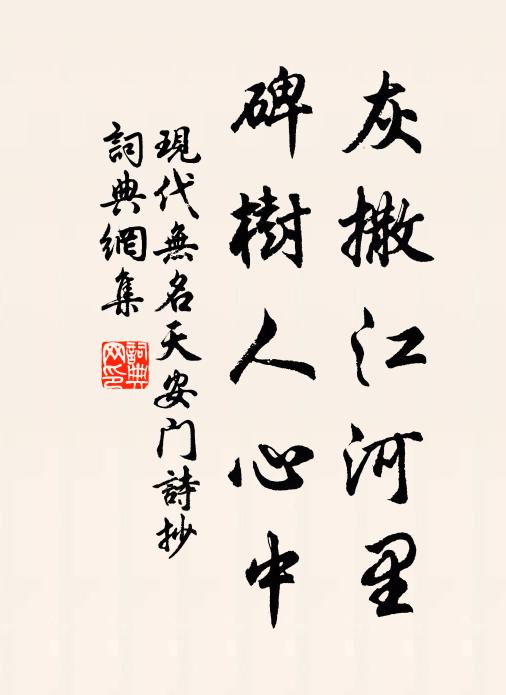 灰撒江河里
碑樹人心中
現代無名天安门詩抄
詞典網集
詞典网印